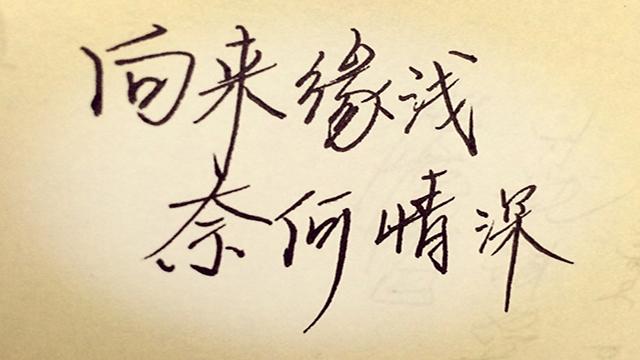 向来缘浅
奈何情深